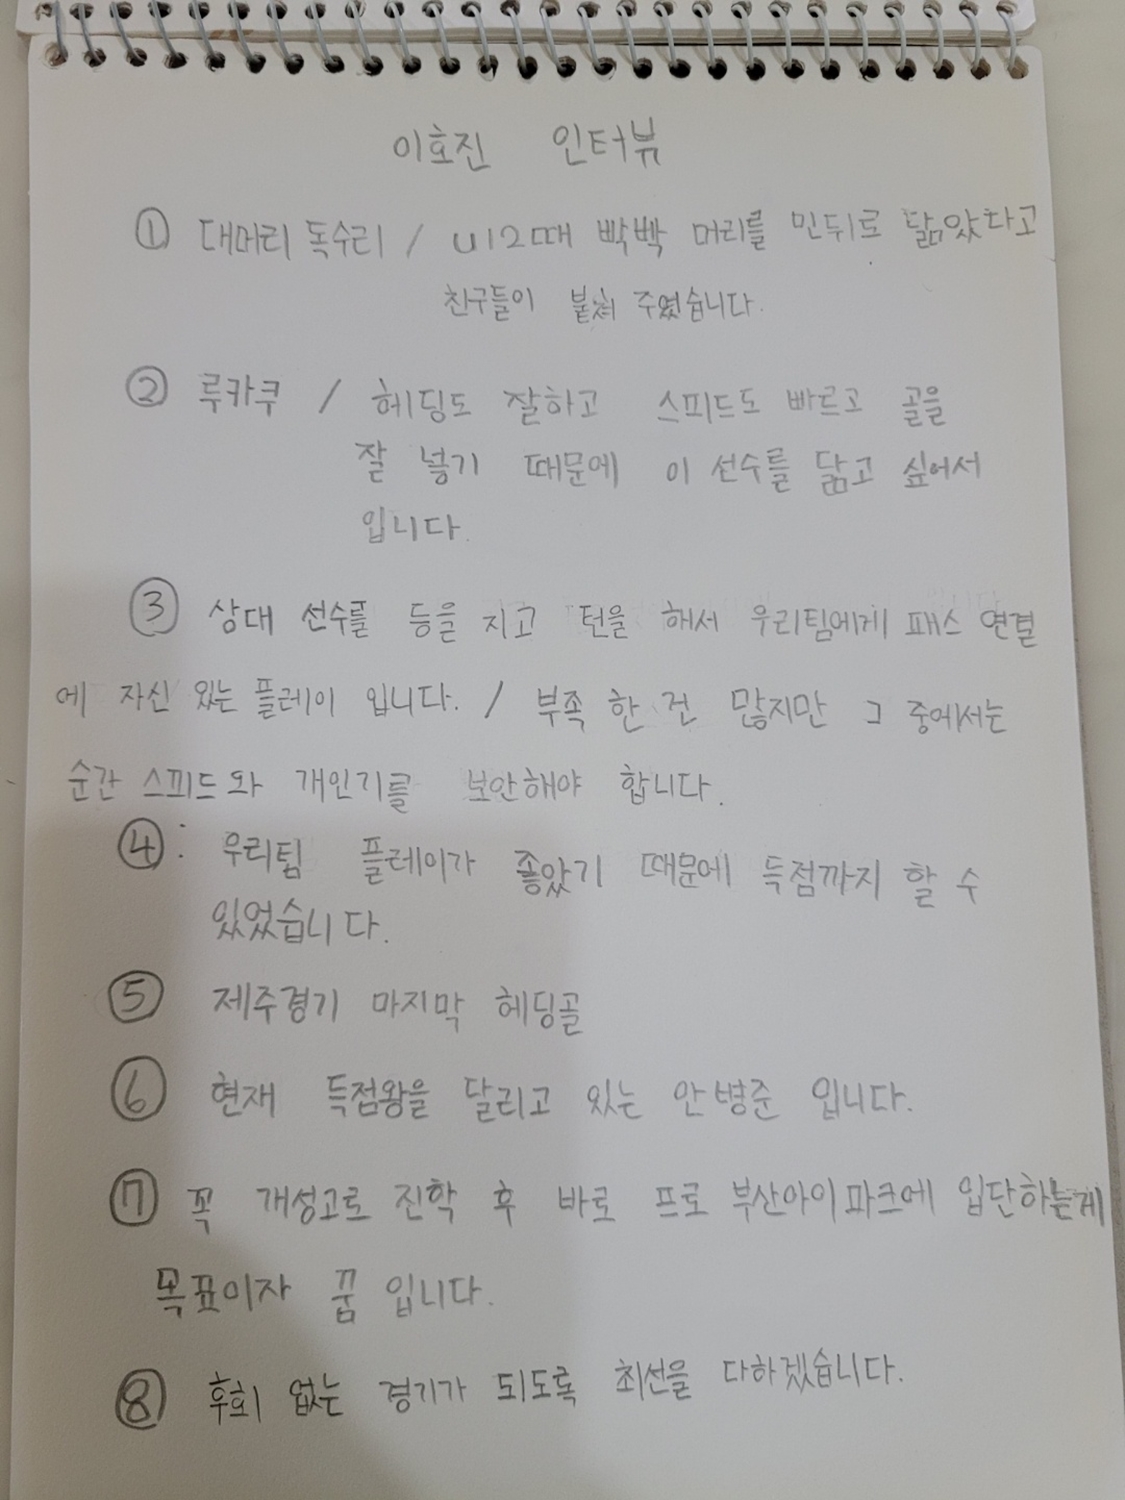 이호진 인터뷰
① 대머리 독수리 / U12때 빡빡 머리를 민뒤로 닮았다고
친구들이 붙쳐 주었습니다.
② 루카쿠 / 헤딩도 잘하고 스피드도 빠르고 골을
잘 넣기 때문에 이 선수를 닮고 싶어서
입니다.
③ 상대 선수를 등을 지고 턴을 해서 우리팀에게 패스 연결
에 자신 있는 플레이 입니다. / 부족 한 건 많지만 그 중에서는
순간 스피드와 개인기를 보안해야 합니다.
④: 우리팀 플레이가 좋았기 때문에 득점까지 할 수
있었습니다.
⑤ 제주경기 마지막 헤딩골
⑥ 현재 득점왕을 달리고 있는 안병준 입니다.
⑦ 꼭 개성고로 진학 후 바로 프로 부산아이파크에 입단하는게
목표이자 꿈 입니다.
⑧ 후회 없는 경기가 되도록 최선을 다하겠습니다.